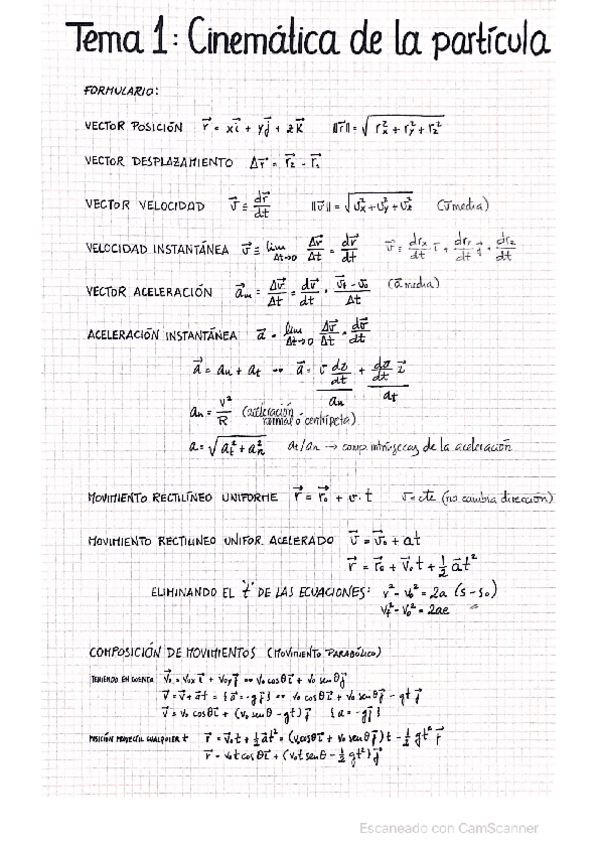 Tema 1: Cinemática de la partícula
FORMULARIO:
VECTOR POSICIÓN r⃗ = xi⃗ + yj⃗ + zk⃗ ||r⃗|| = √(rx² + ry² + rz²)
VECTOR DESPLAZAMIENTO Δr⃗ = r⃗₂ - r⃗₁
VECTOR VELOCIDAD v⃗ ≡ dr⃗/dt ||v⃗|| = √(vx² + vy² + vz²) (v⃗ media)
VELOCIDAD INSTANTÁNEA v⃗ ≡ lim Δt→0 Δr⃗/Δt = dr⃗/dt v⃗ = drx/dt i⃗ + dry/dt j⃗ + drz/dt
VECTOR ACELERACIÓN a⃗m = Δv⃗/Δt = dv⃗/dt = (v⃗f - v⃗o)/Δt (a⃗ media)
ACELERACIÓN INSTANTÁNEA a⃗ = lim Δt→0 Δv⃗/Δt = dv⃗/dt
a⃗ = an + at
an at
an = v²/R (aceleración normal ó centrípeta)
a = √(at² + an²) at/an → comp. intrínsecas de la aceleración
MOVIMIENTO RECTILÍNEO UNIFORME r⃗ = r⃗o + v · t v⃗ = cte (no cambia dirección)
MOVIMIENTO RECTILINEO UNIFOR. ACELERADO v⃗ = v⃗o + at
r⃗ = r⃗o + v⃗o t + 1/2 a⃗t²
ELIMINANDO EL 't' DE LAS ECUACIONES: v² - vo² = 2a (s - so)
vf² - vo² = 2ae
COMPOSICIÓN DE MOVIMIENTOS (MOVIMIENTO PARABÓLICO)
TENIENDO EN CUENTA v⃗o = vox i⃗ + voy j⃗ vo cosθ i⃗ + vo senθ j⃗
v⃗ = v⃗ + a⃗t = {a⃗ = -gj⃗} vo cosθ i⃗ + vo senθ j⃗ - gt j⃗
v⃗ = vo cosθ i⃗ + (vo senθ - gt) j⃗ {a = -gj⃗}
POSICIÓN PROYECTIL CUALQUIER t r⃗ = v⃗o t + 1/2 a⃗t² = (vo cosθ i⃗ + vo senθ j⃗) t - 1/2 gt² j⃗
r⃗ = vo t cosθ i⃗ + (vo t senθ - 1/2 gt²) j⃗
Escaneado con CamScanner